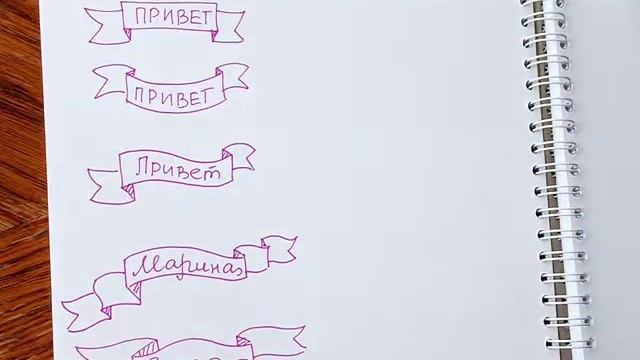 ПРИВЕТ
ПРИВЕТ
Привет
Марина